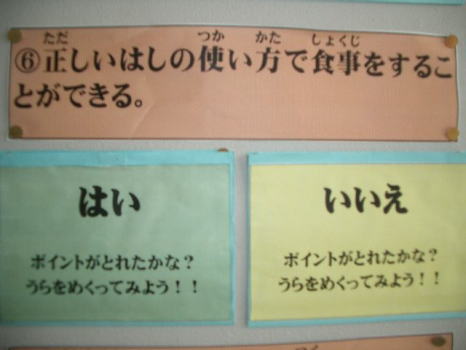 ⑥正しいはしの使い方で食事をするこ
とができる。
はい
ポイントがとれたかな?
うらをめくってみよう!!
いいえ
ポイントがとれたかな?
うらをめくってみよう!!